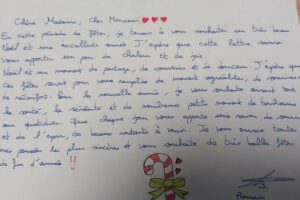 Chère Madame, Cher Monsieur
En cette période de fêtes, je tenais à vous souhaiter un très beau
Noël et une excellente année. J'espère que cette lettre saura
vous apporter un peu de chaleur et de joie.
Noël est un moment de partage, de souvenirs et de douceur. J'espère que
ces fêtes seront pour vous remplies de moments agréables, de sourires et
de réconfort. Pour la nouvelle année, je vous souhaite avant tout
la santé, la sérénité et de nombreux petits moments de bonheur
au quotidien. Que chaque jour vous apporte une raison de sourire
et de l'espoir, de beaux instants à venir. Je vous envoie toutes
mes pensées les plus sincères et vous souhaite de très belles fêtes
de fin d'année !!
Romain